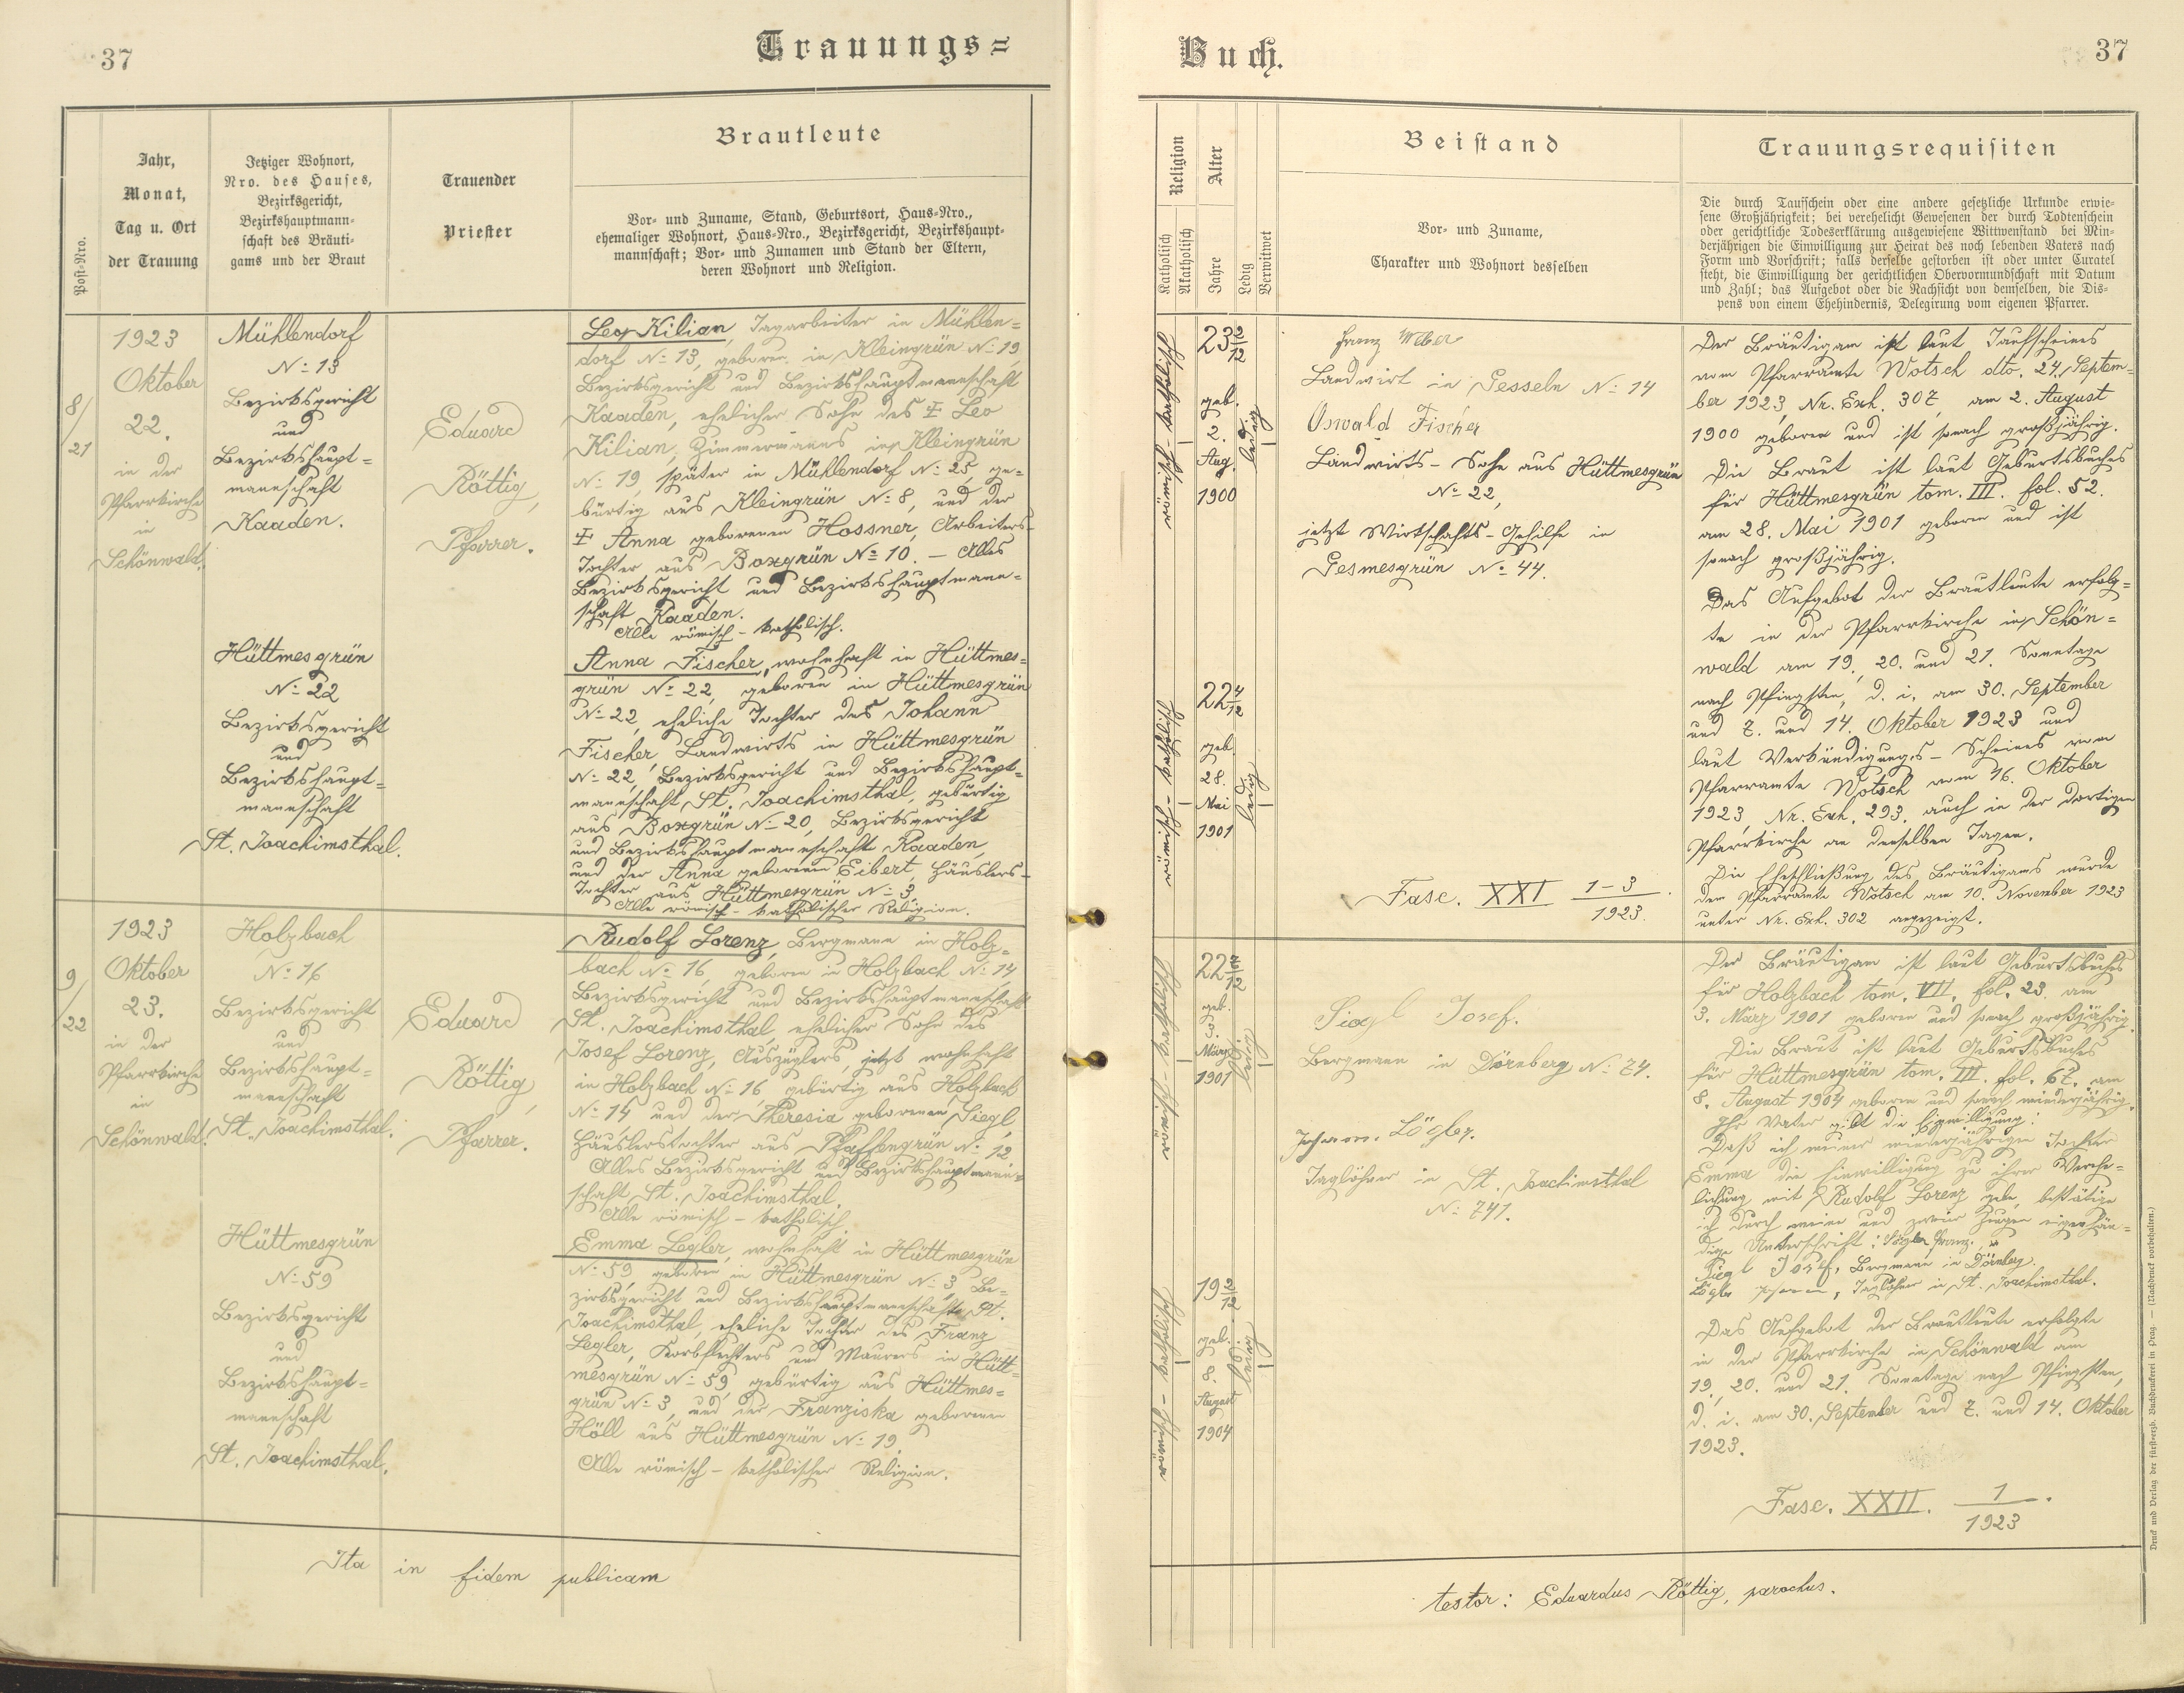 37
Trauungs=
Post-Nro.
Jahr,
Monat,
Tag u. Ort
der Trauung
Jetziger Wohnort,
Nro. des Hauses,
Bezirksgericht,
Bezirkshauptmann-
schaft des Bräuti-
gams und der Braut
Trauender
Priester
Brautleute
Vor- und Zuname, Stand, Geburtsort, Haus-Nro.,
ehemaliger Wohnort, Haus-Nro., Bezirksgericht, Bezirkshaupt-
mannschaft; Vor- und Zunamen und Stand der Eltern,
deren Wohnort und Religion.
8/
21
1923
Oktober
22.
in der
Pfarrkirche
in
Schönwald.
Mühlendorf
No 13
Bezirksgericht
und
Bezirkshaupt=
mannschaft
Kaaden.
Hüttmesgrün
No 22
Bezirksgericht
und
Bezirkshaupt=
mannschaft
St. Joachimsthal.
Eduard
Röttig,
Pfarrer.
Leo Kilian, Tagarbeiter in Mühlen=
dorf No 13, geboren in Kleingrün No 19
Bezirksgericht und Bezirkshauptmannschaft
Kaaden, ehelicher Sohn des ‡ Leo
Kilian, Zimmermanns in Kleingrün
No 19, später in Mühlendorf No 25, ge=
bürtig aus Kleingrün No 8, und der
‡ Anna geborenen Hossner, Arbeiters-
Tochter aus Boxgrün No 10. – Alles
Bezirksgericht und Bezirkshauptmann=
schaft Kaaden.
Alle römisch-katholisch.
Anna Fischer, wohnhaft in Hüttmes=
grün No 22, geboren in Hüttmesgrün
No 22, eheliche Tochter des Johann
Fischer, Landwirts in Hüttmesgrün
No 22, Bezirksgericht und Bezirkshaupt=
mannschaft St. Joachimsthal, gebürtig
aus Boxgrün No 20, Bezirksgericht
und Bezirkshauptmannschaft Kaaden,
und der Anna geborenen Eibert, Häuslers-
Tochter aus Hüttmesgrün No 3.
Alle römisch-katholischer Religion.
9/
22
1923
Oktober
23.
in der
Pfarrkirche
in
Schönwald.
Holzbach
No 16
Bezirksgericht
und
Bezirkshaupt=
mannschaft
St. Joachimsthal.
Hüttmesgrün
No 59
Bezirksgericht
und
Bezirkshaupt=
mannschaft
St. Joachimsthal.
Eduard
Röttig,
Pfarrer.
Rudolf Lorenz, Bergmann in Holz=
bach No 16, geboren in Holzbach No 14,
Bezirksgericht und Bezirkshauptmannschaft
St. Joachimsthal, ehelicher Sohn des
Josef Lorenz, Auszüglers, jetzt wohnhaft
in Holzbach No 16, gebürtig aus Holzbach
No 14 und der Theresia geborenen Siegl,
Häuslerstochter aus Pfaffengrün No 12
Alles Bezirksgericht und Bezirkshauptmann=
schaft St. Joachimsthal.
Alle römisch-katholisch.
Emma Legler, wohnhaft in Hüttmesgrün
No 59, geboren in Hüttmesgrün No 3, Be=
zirksgericht und Bezirkshauptmannschaft St.
Joachimsthal, eheliche Tochter des Franz
Legler, Korbflechters und Maurers in Hütt=
mesgrün No 59, gebürtig aus Hüttmes=
grün No 3, und der Franziska geborenen
Höll aus Hüttmesgrün No 19.
Alle römisch-katholischer Religion.
Ita in fidem publicam
Buch.
37
Religion
Katholisch
Akatholisch
Alter
Jahre
Ledig
Verwitwet
Beistand
Vor- und Zuname,
Charakter und Wohnort desselben
Trauungsrequisiten
Die durch Taufschein oder eine andere gesetzliche Urkunde erwie-
sene Großjährigkeit; bei verehelicht Gewesenen der durch Todtenschein
oder gerichtliche Todeserklärung ausgewiesene Wittwenstand bei Min-
derjährigen die Einwilligung zur Heirat des noch lebenden Vaters nach
Form und Vorschrift; falls derselbe gestorben ist oder unter Curatel
steht, die Einwilligung der gerichtlichen Obervormundschaft mit Datum
und Zahl; das Aufgebot oder die Nachsicht von demselben, die Dis-
pens von einem Ehehindernis, Delegirung vom eigenen Pfarrer.
römisch-katholisch
23 2/12
geb.
2.
Aug.
1900
ledig
römisch-katholisch
22 4/12
geb.
28.
Mai
1901
ledig
Franz Weber
Landwirt in Gesseln No 14
Oswald Fischer
Landwirts-Sohn aus Hüttmesgrün
No 22,
jetzt Wirtschafts-Gehilfe in
Gesmesgrün No 44.
Fasc. XXI 1-3/1923.
Der Bräutigam ist laut Taufscheines
vom Pfarramte Wotsch dto. 24. Septem=
ber 1923, Nr. Exh. 307, am 2. August
1900 geboren und ist sonach großjährig.
Die Braut ist laut Geburtsbuches
für Hüttmesgrün tom. III. fol. 52.
am 28. Mai 1901 geboren und ist
sonach großjährig.
Das Aufgebot der Brautleute erfolg=
te in der Pfarrkirche in Schön=
wald am 19., 20. und 21. Sonntage
nach Pfingsten, d. i. am 30. September
und 7. und 14. Oktober 1923 und
laut Verkündigungs-Scheines vom
Pfarramte Wotsch vom 16. Oktober
1923, Nr. Exh. 293, auch in der dortigen
Pfarrkirche an denselben Tagen.
Die Eheschließung des Bräutigams wurde
dem Pfarramte Wotsch am 10. November 1923
unter Nr. Exh. 302 angezeigt.
römisch-katholisch
22 7/12
geb.
3.
März
1901
ledig
römisch-katholisch
19 2/12
geb.
8.
August
1904
ledig
Siegl Josef.
Bergmann in Dörnberg No 74.
Lögler.
Taglöhner in St. Joachimsthal
No 741.
Der Bräutigam ist laut Geburtsbuches
für Holzbach tom. VII. fol. 23. am
3. März 1901 geboren und sonach großjährig.
Die Braut ist laut Geburtsbuches
für Hüttmesgrün tom. III. fol. 67. am
8. August 1904 geboren und sonach minderjährig.
Ihr Vater gibt die Einwilligung:
Daß ich meiner minderjährigen Tochter
Emma die Einwilligung zu ihrer Verehe=
lichung mit Rudolf Lorenz gebe, bestätige
ich durch meine und zweier Zeugen eigenhän=
dige Unterschrift: Lögler Franz.
Siegl Josef, Bergmann in Dörnberg.
Lögler, Taglöhner in St. Joachimsthal.
Das Aufgebot der Brautleute erfolgte
in der Pfarrkirche in Schönwald am
19., 20. und 21. Sonntage nach Pfingsten,
d. i. am 30. September und 7. und 14. Oktober
1923.
Fasc. XXII. 1/1923.
testor: Eduardus Röttig, parochus.
Druck und Verlag der fürsterzb. Buchdruckerei in Prag. — (Nachdruck vorbehalten.)